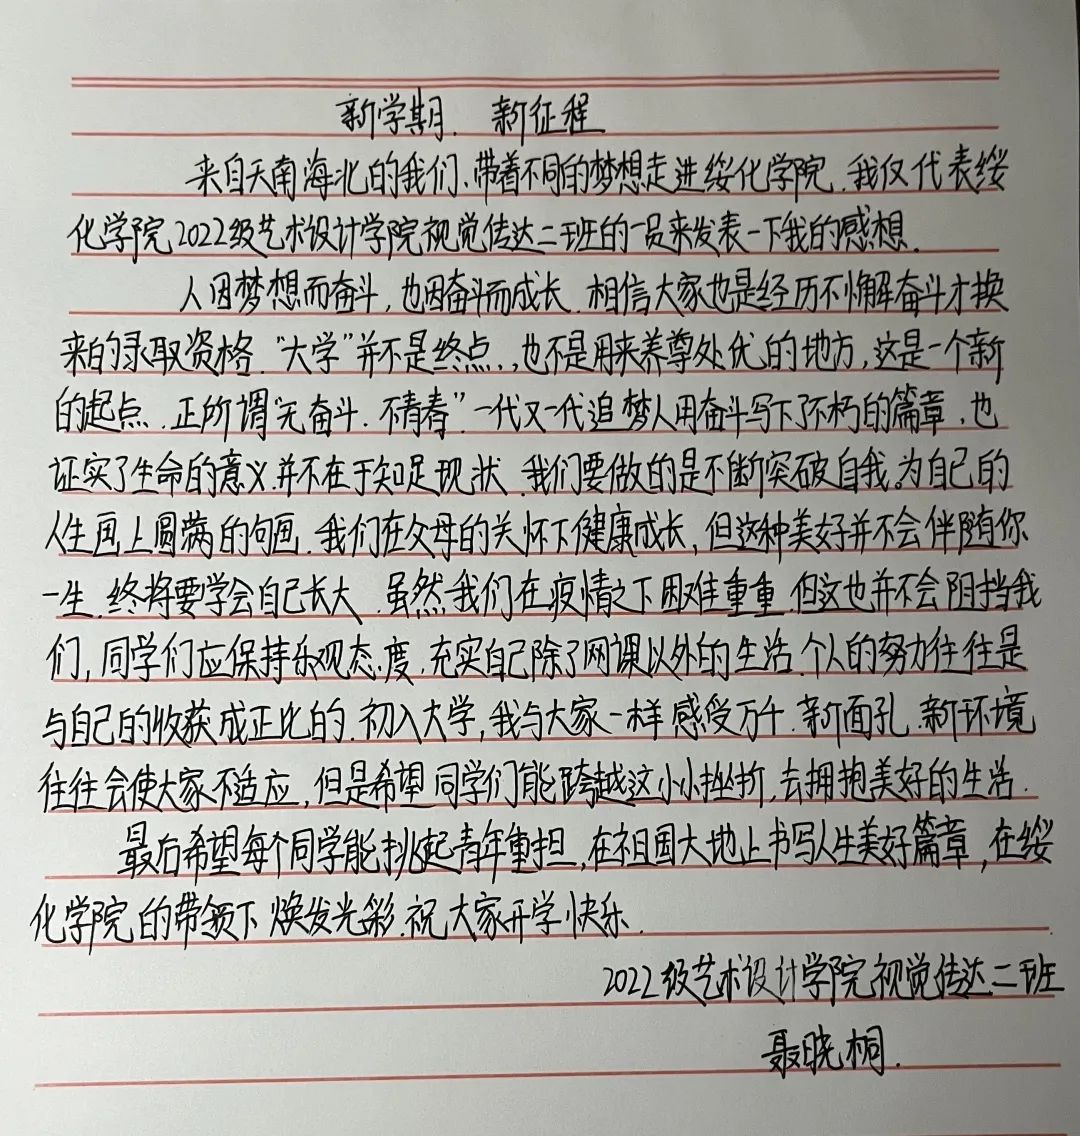 新学期. 新征程
来自天南海北的我们、带着不同的梦想走进绥化学院.我仅代表绥
化学院2022级艺术设计学院视觉传达二班的一员来发表一下我的感想.
人因梦想而奋斗,也因奋斗而成长.相信大家也是经历不懈奋斗才换
来的录取资格."大学"并不是终点.,也不是用来养尊处优的地方,这是一个新
的起点.正所谓"无奋斗.不青春"一代又一代追梦人用奋斗写下了不朽的篇章.也
证实了生命的意义.并不在于知足现状.我们要做的是不断突破自我。为自己的
人生画上圆满的句画.我们在父母的关怀下健康成长,但这种美好并不会伴随你
一生.终将要学会自己长大.虽然我们在疫情之下困难重重.但这也并不会阻挡我
们,同学们应保持乐观态度.充实自己除了网课以外的生活.个人的努力往往是
与自己的收获成正比的.初入大学,我与大家一样感受万千.新面孔.新环境
往往会使大家不适应,但是希望同学们能跨越这小小挫折,去拥抱美好的生活.
最后希望每个同学能挑起青年重担,在祖国大地上书写人生美好篇章,在绥
化学院的带领下焕发光彩.祝大家开学快乐.
2022级艺术设计学院视觉传达二班
聂晓桐.